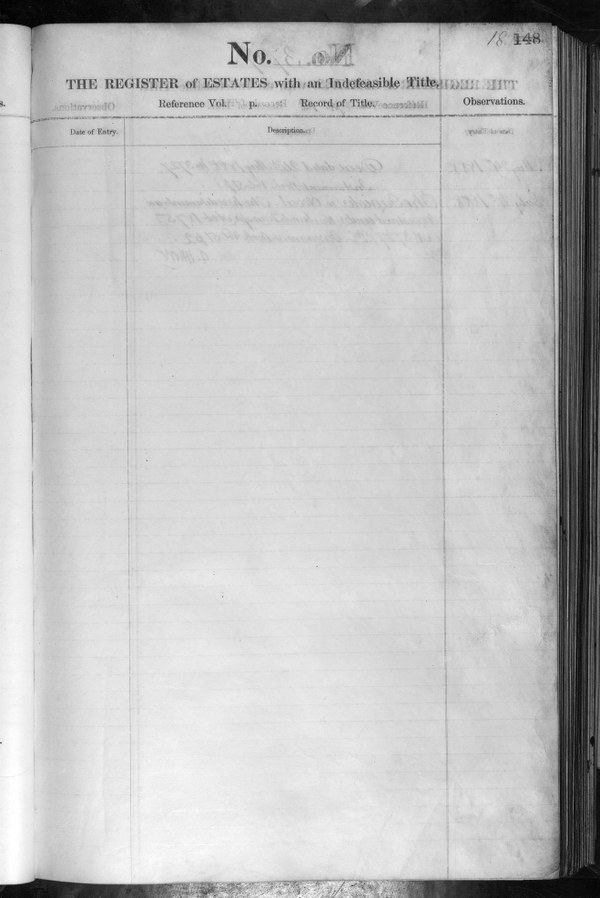 18 148
No.
THE REGISTER of ESTATES with an Indefeasible Title.
Reference Vol. p. Record of Title.
Observations.
Date of Entry.
Description.
s.